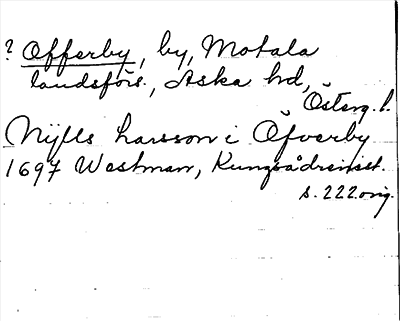 ? Offerby, by, Motala
landsförs., Aska hd,
Österg. l.
Nijlls Larsson i Öfverby
1697 Westman, Kungsådreinst.
s. 222 orig.